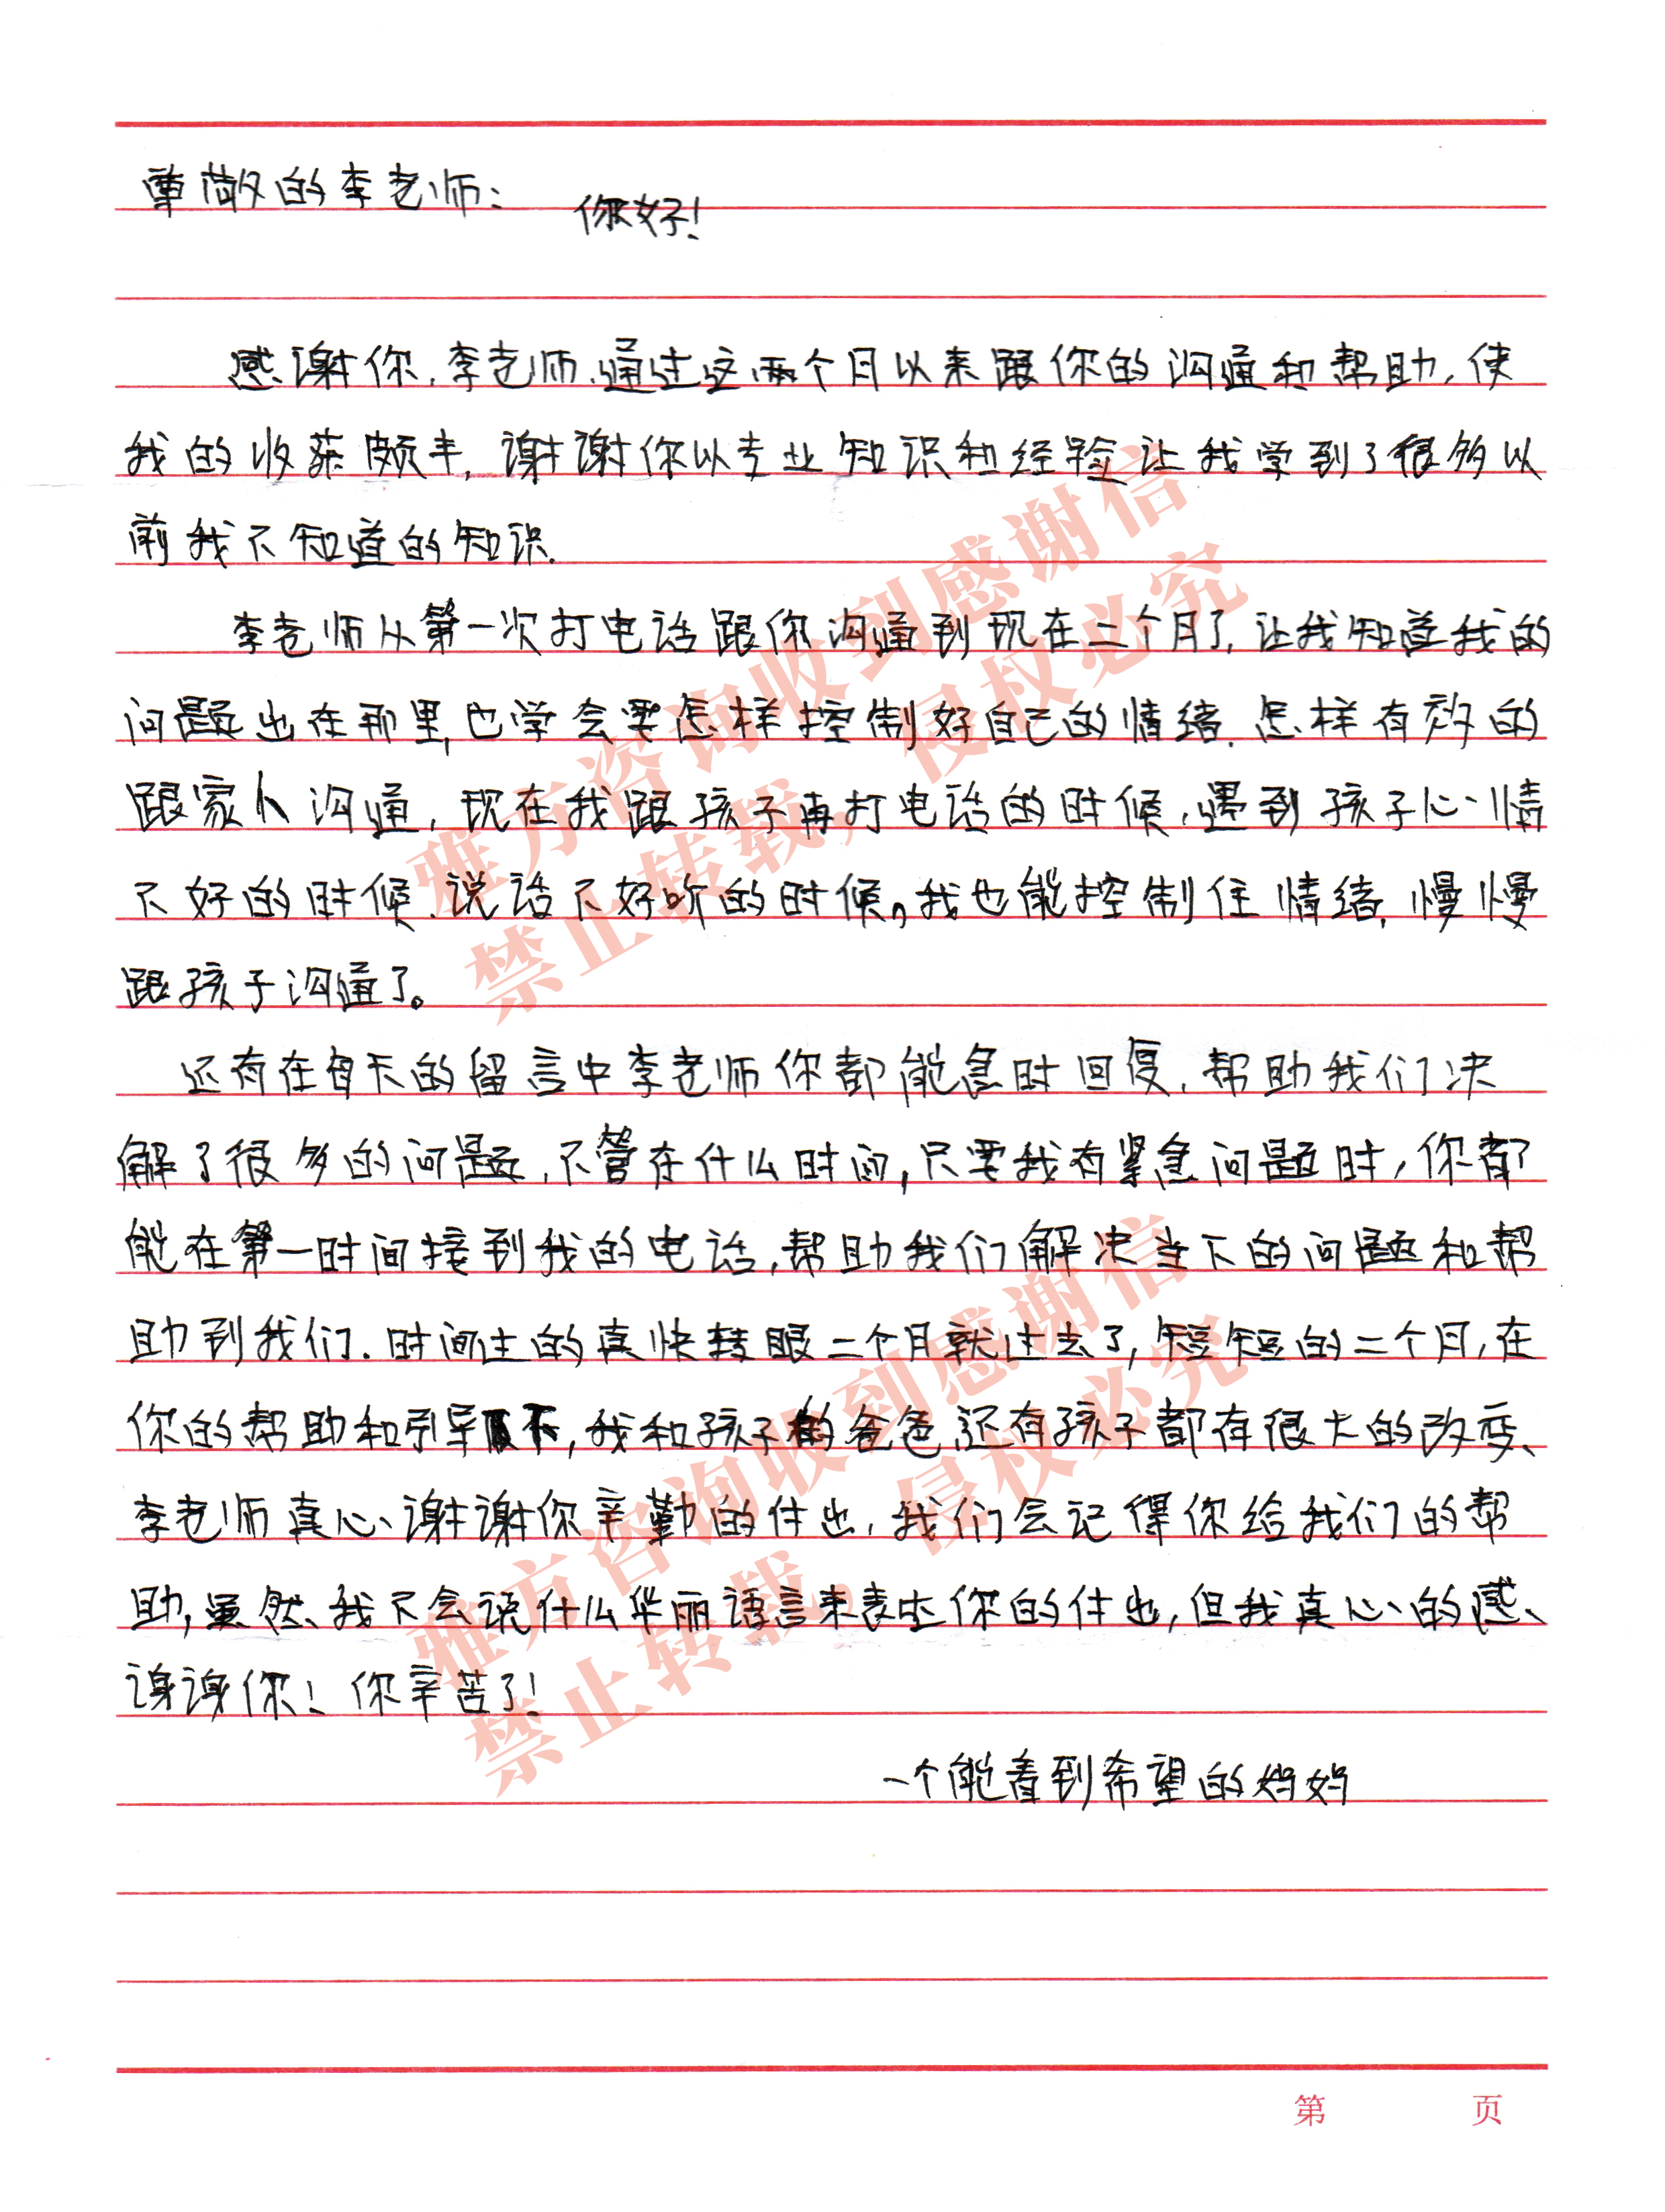 尊敬的李老师：
你好！
感谢你，李老师，通过这两个月以来跟你的沟通和帮助，使
我的收获颇丰，谢谢你以专业知识和经验让我学到了很多以
前我不知道的知识.
李老师从第一次打电话跟你沟通到现在二个月了，让我知道我的
问题出在那里，也学会要怎样控制好自己的情绪，怎样有效的
跟家人沟通，现在我跟孩子再打电话的时候，遇到孩子心情
不好的时候、说话不好听的时候，我也能控制住情绪，慢慢
跟孩子沟通了。
还有在每天的留言中李老师你都能急时回复，帮助我们决
解了很多的问题，不管在什么时间，只要我有紧急问题时，你都
能在第一时间接到我的电话，帮助我们解决当下的问题和帮
助到我们.时间过的真快转眼二个月就过去了，短短的二个月，在
你的帮助和引导下，我和孩子的爸爸还有孩子都有很大的改变、
李老师真心谢谢你辛勤的付出，我们会记得你给我们的帮
助，虽然、我不会说什么华丽语言来表达你的付出，但我真心的感、
谢谢你！你辛苦了！
一个能看到希望的妈妈
雅方咨询收到感谢信
禁止转载，侵权必究
雅方咨询收到感谢信
禁止转载，侵权必究
第 页